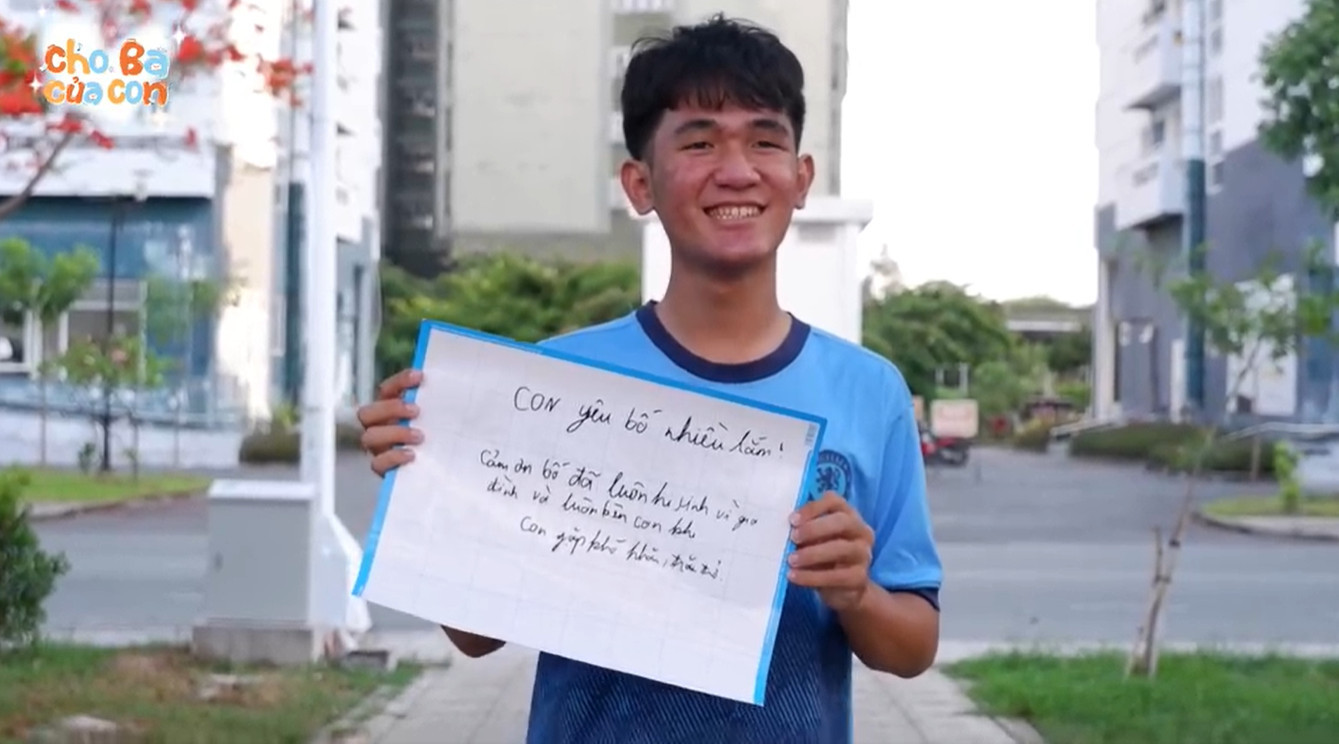 cho Ba
của con
CON yêu bố nhiều lắm!
Cảm ơn bố đã luôn hi sinh vì gia
đình và luôn bên con khi
con gặp khó khăn, trăn trở.